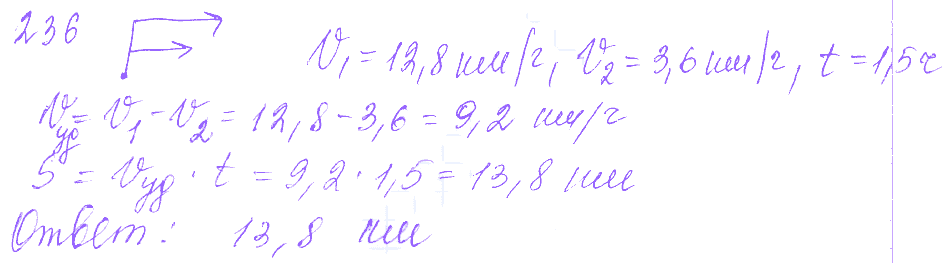 236
V₁ = 12,8 км/ч, V₂ = 3,6 км/ч, t = 1,5 ч
Vуд = V₁ - V₂ = 12,8 - 3,6 = 9,2 км/ч
S = Vуд · t = 9,2 · 1,5 = 13,8 км
Ответ: 13,8 км